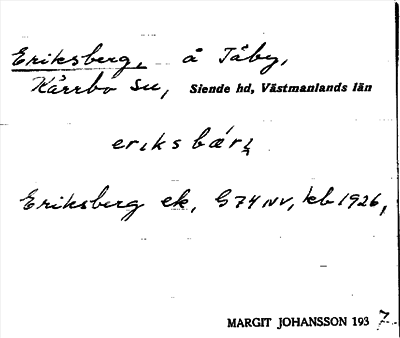 Eriksberg, å Täby,
Kärrbo sn, Siende hd, Västmanlands län
eriksbärj
Eriksberg ek. G 74 NV, kb 1926,
MARGIT JOHANSSON 1937